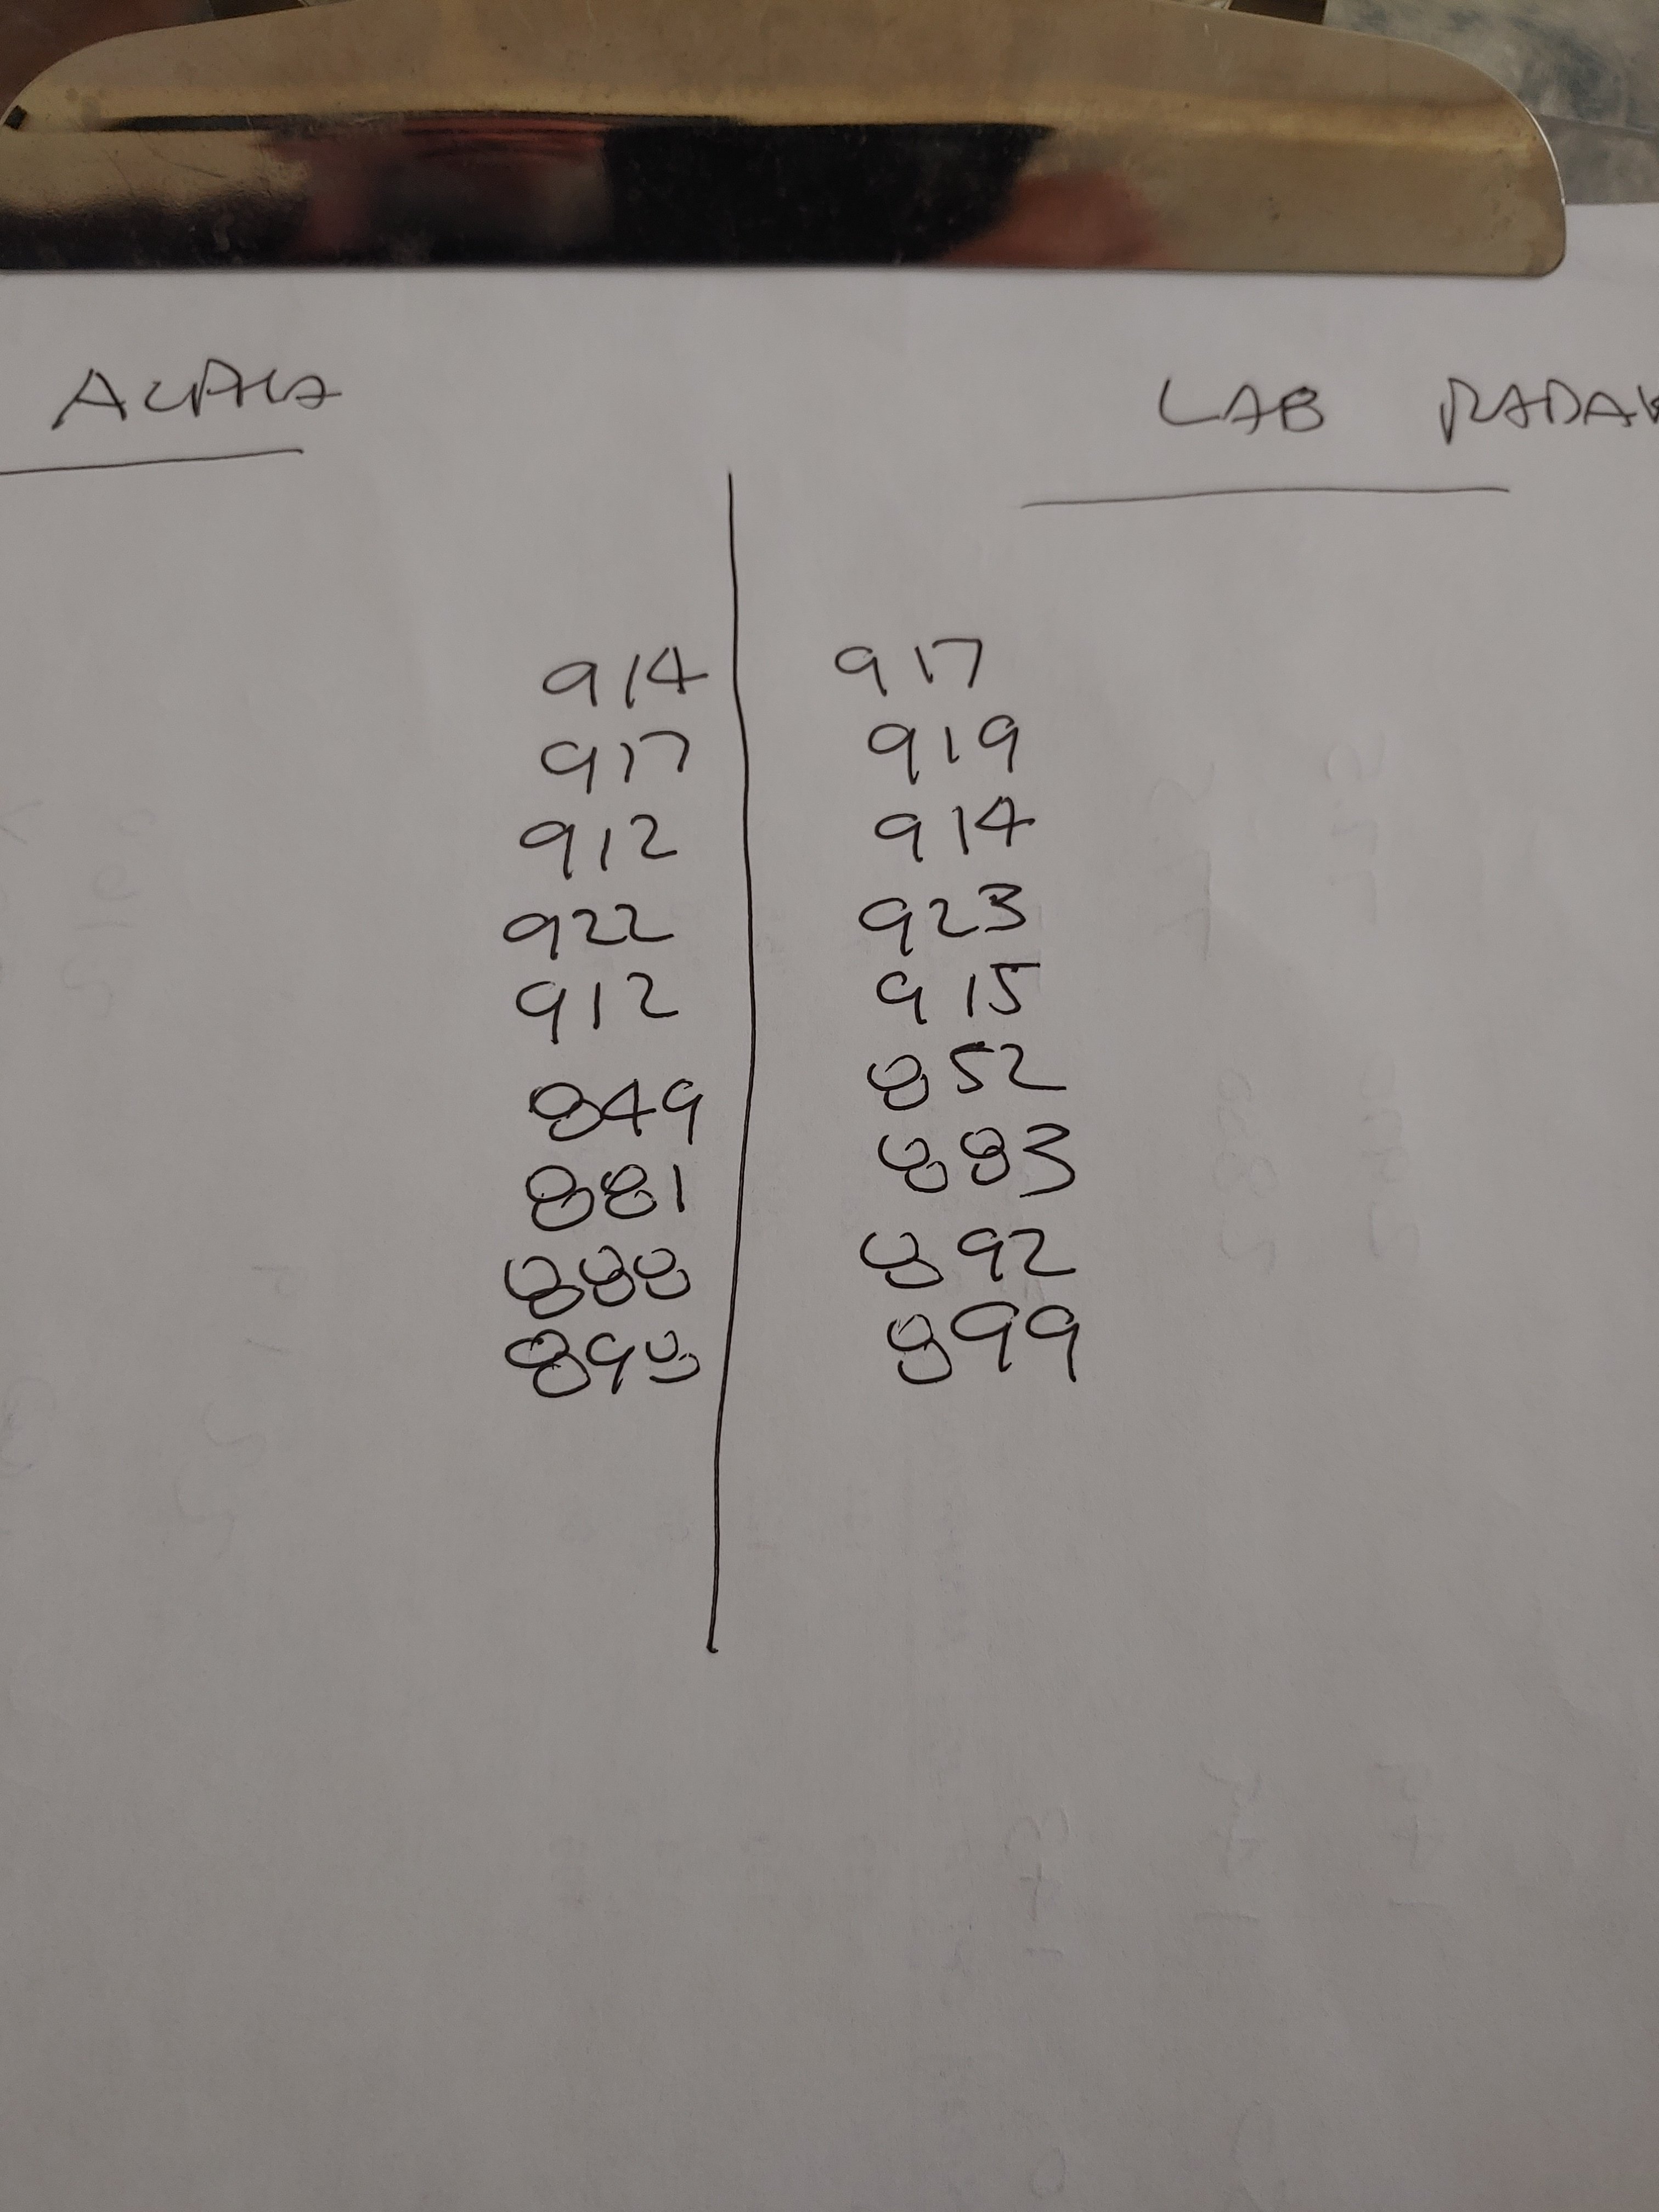 ALPHA LAB RADAR
914 917
917 919
912 914
922 923
912 915
849 852
881 883
888 892
898 899